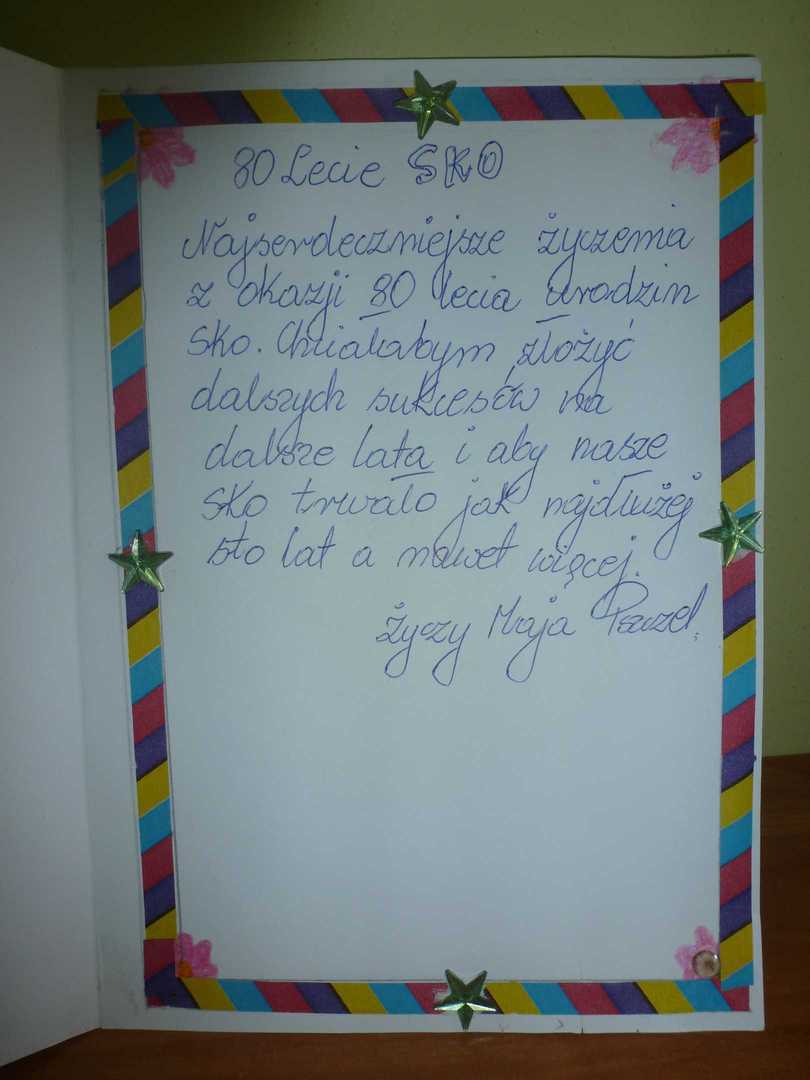 80 Lecie SKO
Najserdeczniejsze życzenia
z okazji 80 lecia urodzin
SKO. Chciałabym złożyć
dalszych sukcesów na
dalsze lata i aby nasze
SKO trwało jak najdłużej
sto lat a nawet więcej.
Życzy Maja